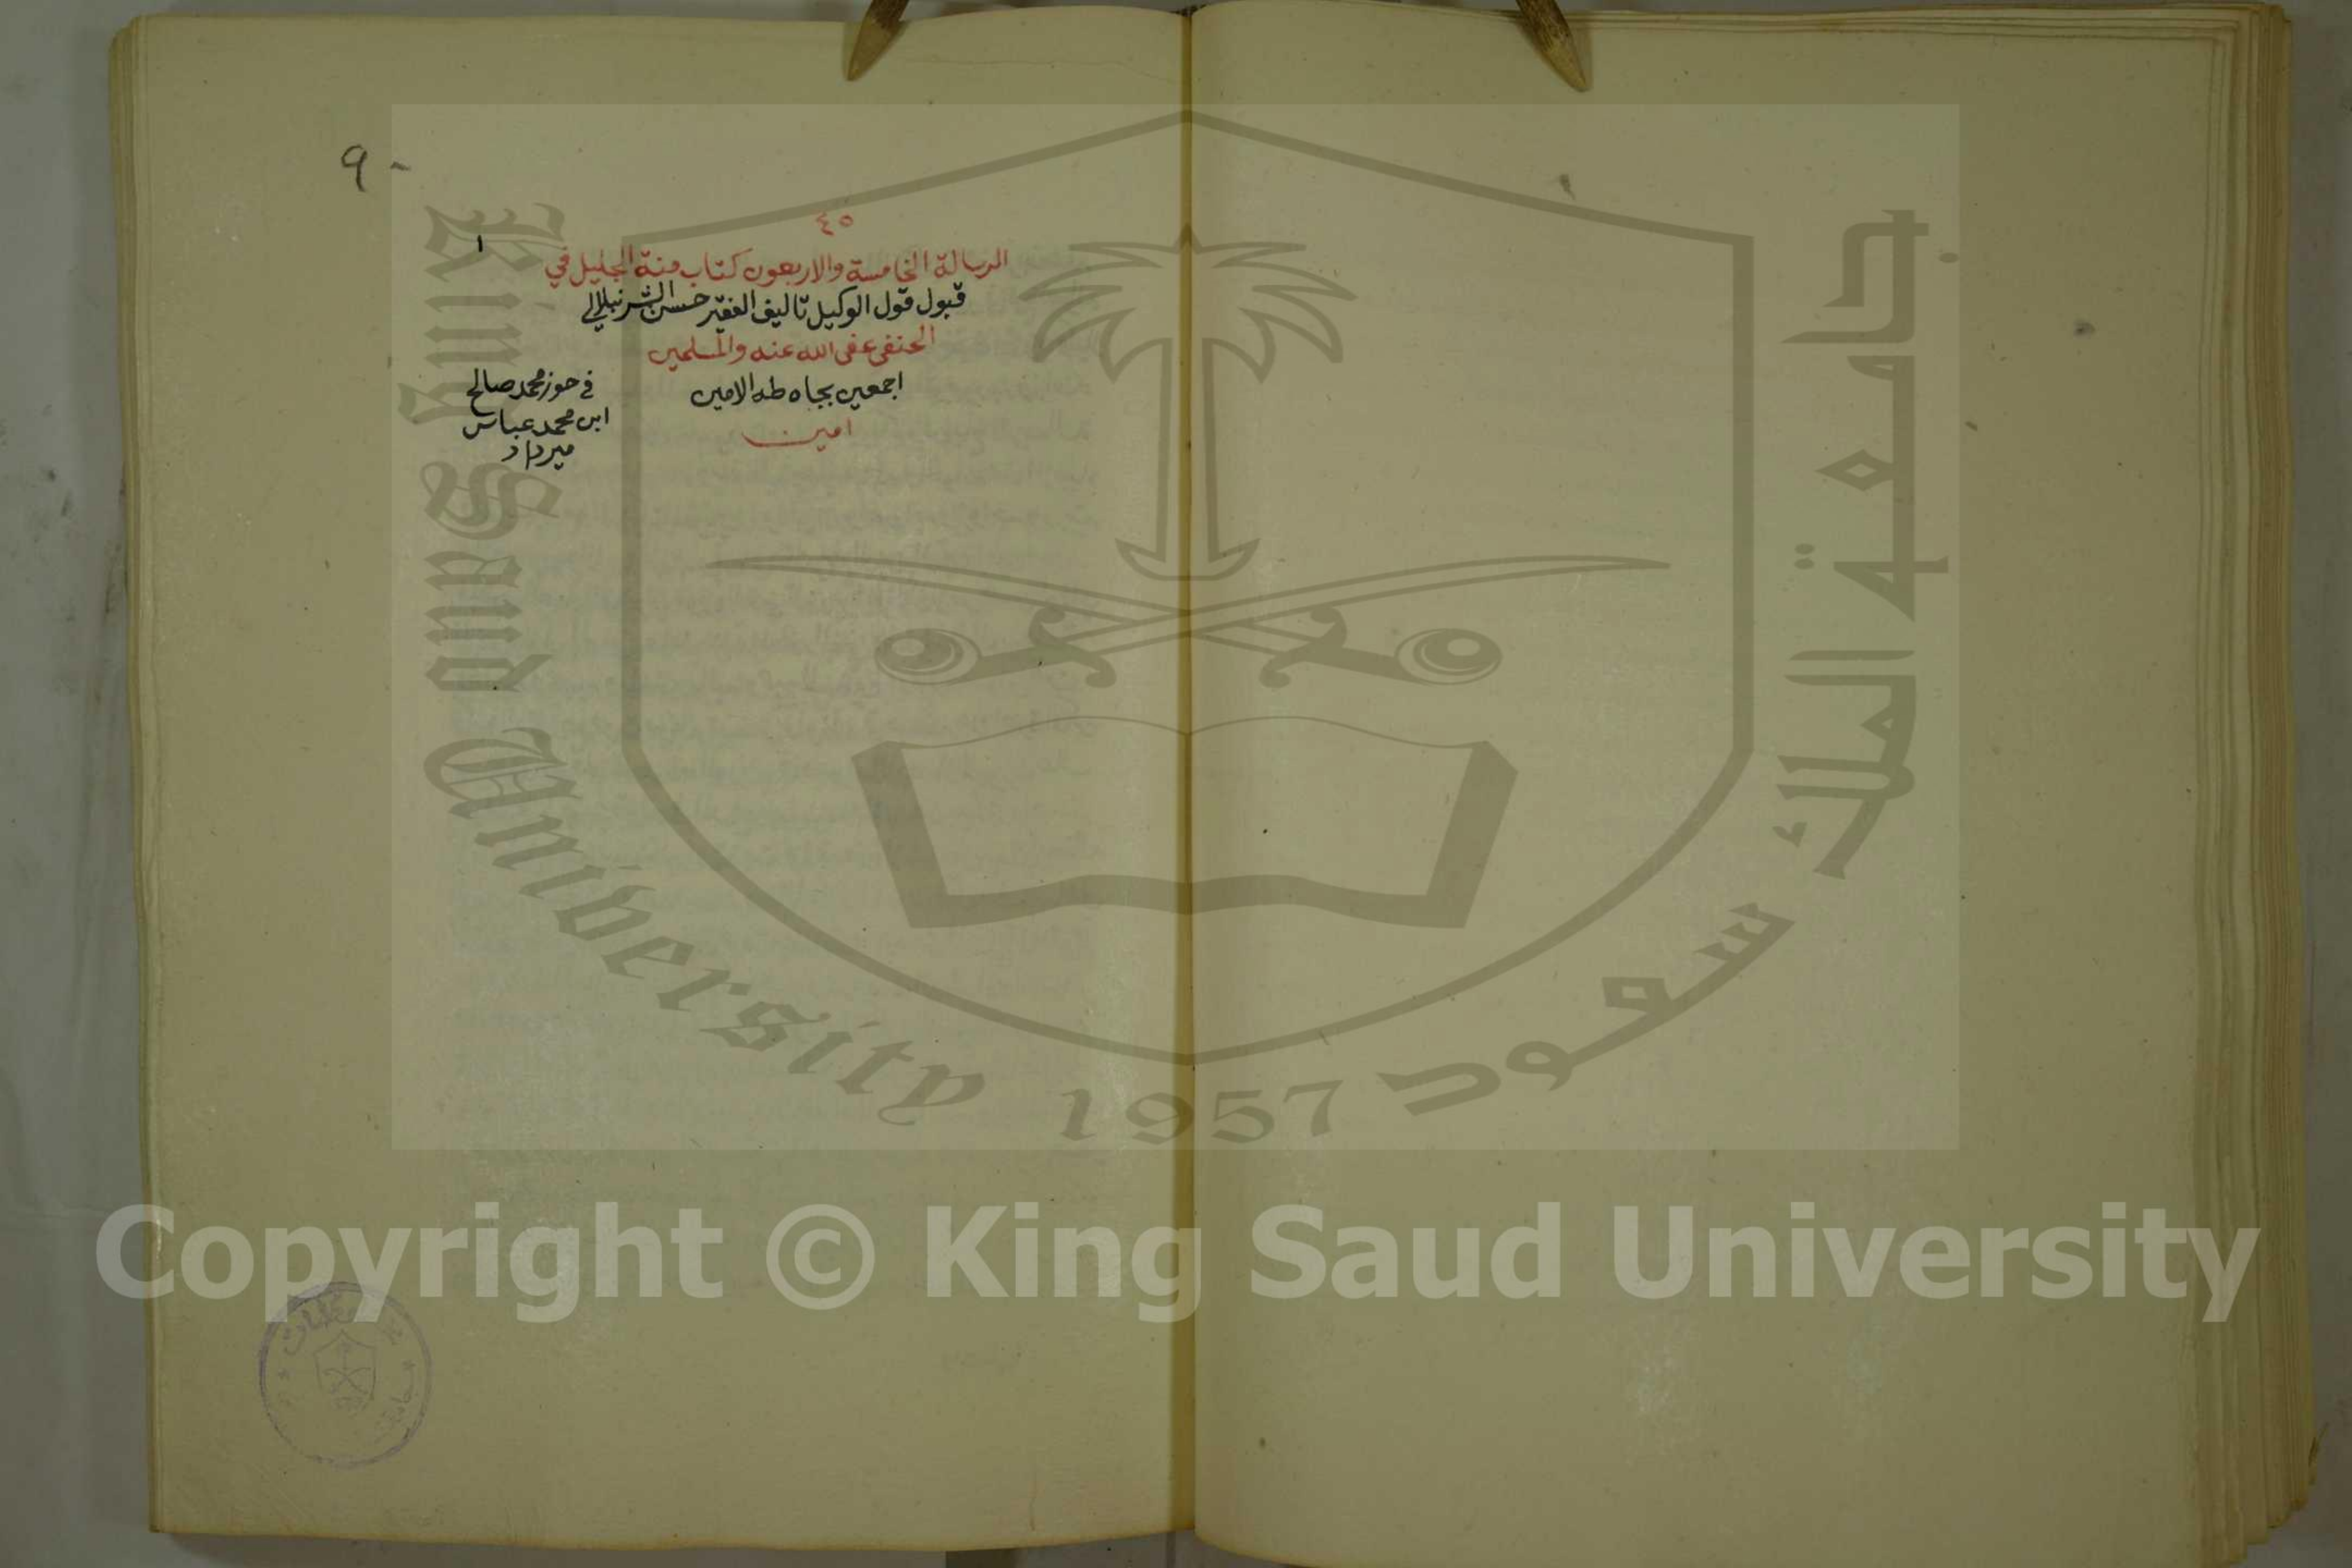 ٩٠
٤٥
١
الرسالة الخامسة والاربعون كتاب منة الجليل في
قبول قول الوكيل تاليف الفقير حسن الشرنبلالي
الحنفي عفى الله عنه والمسلمين
اجمعين بجاه طه الامين
امين
في حوز محمد صالح
ابن محمد عباس
ميرداد
King Saud University
1957
جامعة الملك سعود
Copyright © King Saud University